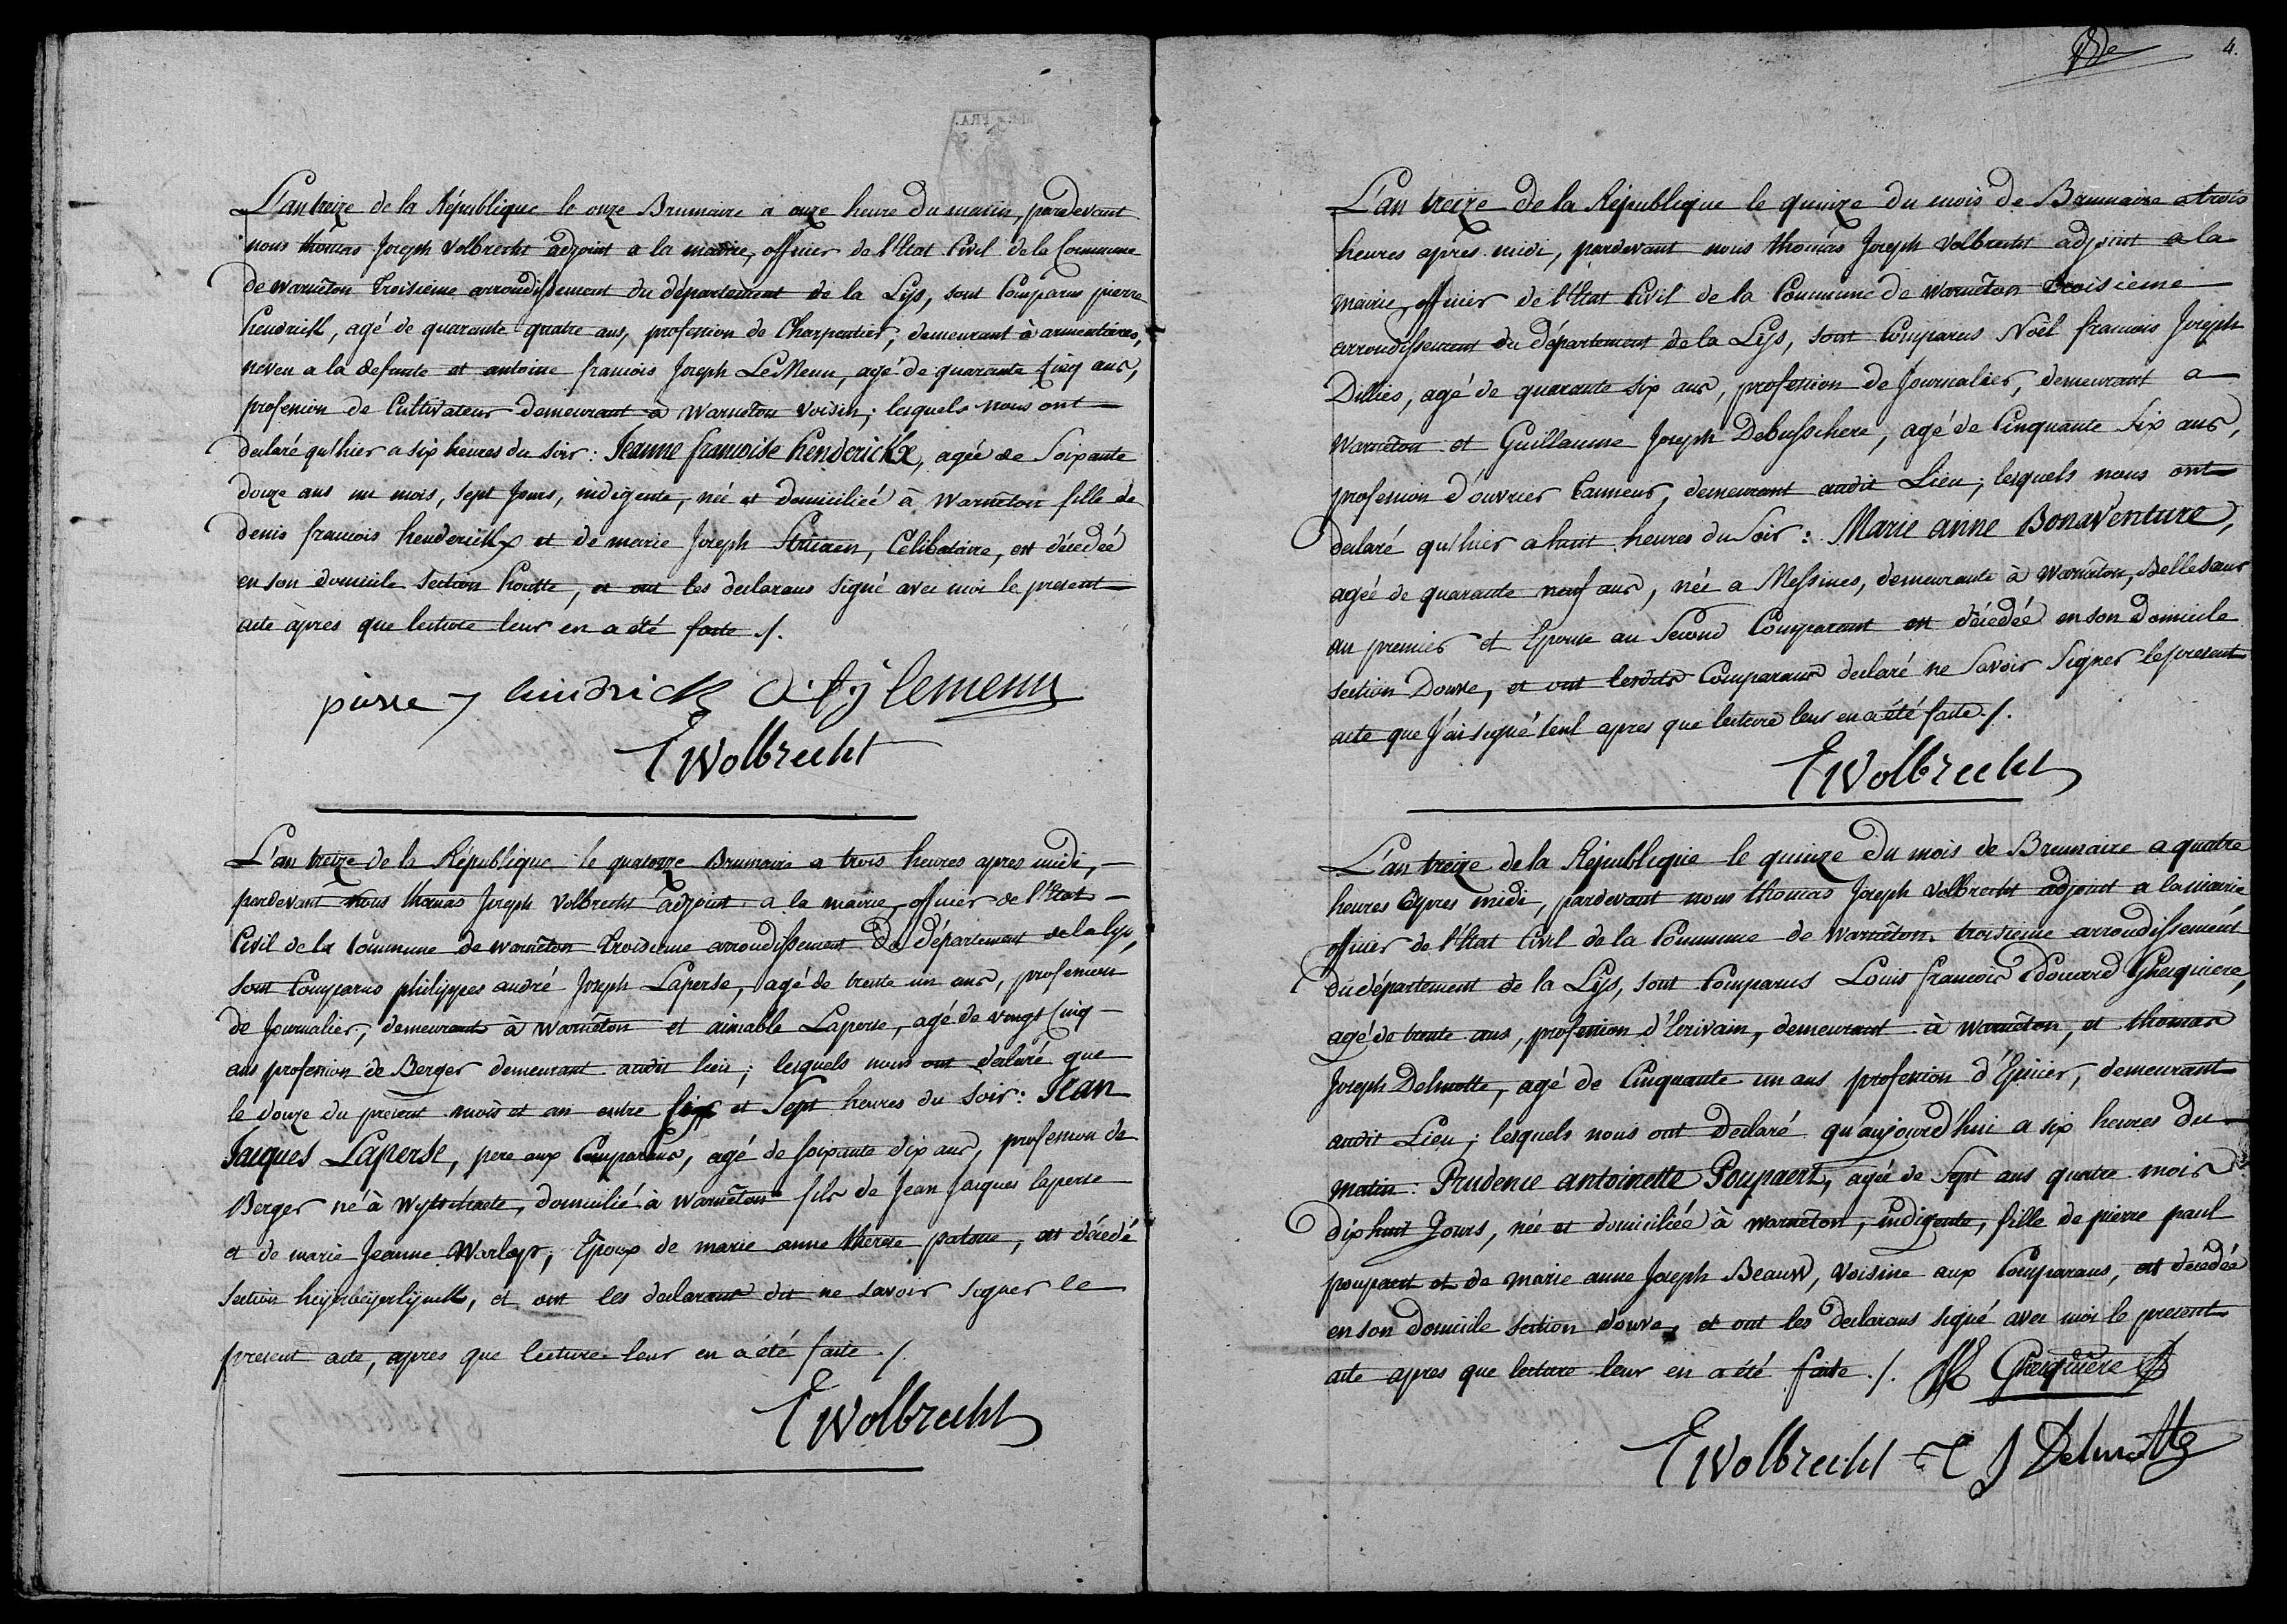 L'an treize de la République le onze Brumaire a onze heure du matin, pardevant
nous thomas Joseph Volbrecht adjoint a la mairie, officier de l'Etat Civil de la Commune
de warnêton troisieme arroudissement du département de la Lys, sont Comparus pierre
hendrick, agé de quarante quatre ans, profession de Charpentier, demeurant à armentieres,
neveu a la defunte et antoine francois Joseph LeMenu, agé de quarante Cinq ans,
profession de Cultivateur demeurant à Warneton voisin; lesquels nous ont
declaré qu'hier a six heures du soir: Jeanne francoise henderickx, agée de Soixante
douze ans un mois, sept Jours, indigente, née et domiciliée à Warnêton fille de
denis francois henderickx et de marie Joseph, Célibataire, est décédée
en son domicile section houtte, et ont les declarans signé avec moi le present
acte àpres que lecture leur en a été faite ./.
pierre hindrick a: f: j lemenu
TWolbrecht
L'an treize de la République le quatorze Brumaire a trois heures apres midi,
pardevant nous thomas Joseph Volbrecht adjoint a la mairie, officier de l'Etat
Civil de la Commune de warnêton troisieme arroudissement du département de la lys,
sont Comparus philippes andré Joseph Laperse, agé de trente un ans, profession
de Journalier, demeurant à warnêton et aimable Laperse, agé de vingt Cinq
ans profession de Berger demeurant audit lieu; lesquels nous ont declaré que
le douze du present mois et an entre six et Sept heures du Soir: Jean
Jacques Laperse, pere aux Comparans, agé de soixante dix ans, profession de
Berger né à Wytschaete, domicilié à warnêton fils de Jean Jacques laperse
et de marie Jeanne Warlop, Epoux de marie anne therese patoue, est décédé
section, et ont les declarans dit ne savoir signer le
present acte, apres que lecture leur en a été faite ./.
TWolbrecht
4.
L'an treize de la République le quinze du mois de Brumaire a trois
heures après midi, pardevant nous thomas Joseph Volbrecht adjoint a la
mairie, officier de l'Etat Civil de la Commune de warnêton troisieme
arroudissement du département de la Lys, sont Comparus Noël francois Joseph
Dillies, agé de quarante six ans, profession de Journalier, demeurant a
Warnêton et Guillaume Joseph Debusschere, agé de Cinquante Six ans,
profession d'ouvrier tanneur, demeurant audit Lieu; lesquels nous ont
declaré qu'hier a huit heures du Soir: Marie anne Bonaventure,
agée de quarante neuf ans, née a Messines, demeurante à Warnêton, Bellesœur
au premier et Epouse au Second Comparant est décédée en son domicile
section Douve, et ont lesdits Comparans declaré ne Savoir Signer le present
acte que J'ai signé seul apres que lecture leur en a été faite ./.
TWolbrecht
L'an treize de la République le quinze du mois de Brumaire a quatre
heures apres midi, pardevant nous thomas Joseph Volbrecht adjoint a la mairie
officier de l'Etat Civil de la Commune de warnêton troisieme arroudissement
du département de la Lys, sont Comparus Louis francois Edouard Ghesquiere,
agé de trente ans, profession d'Ecrivain, demeurant à warnêton, et thomas
Joseph Delmotte, agé de Cinquante un ans profession d'Epicier, demeurant
audit Lieu; lesquels nous ont declaré qu'aujourd'hui a six heures du
matin: Prudence antoinette Poupaert, agée de Sept ans quatre mois
dix huit Jours, née et domiciliée à warnêton, indigente, fille de pierre paul
poupaert et de marie anne Joseph Beauw, voisine aux Comparans, est décédée
en son domicile section douve, et ont les declarans signé avec moi le present
acte apres que lecture leur en a été faite ./. Ghesquiere
TWolbrecht T J Delmotte